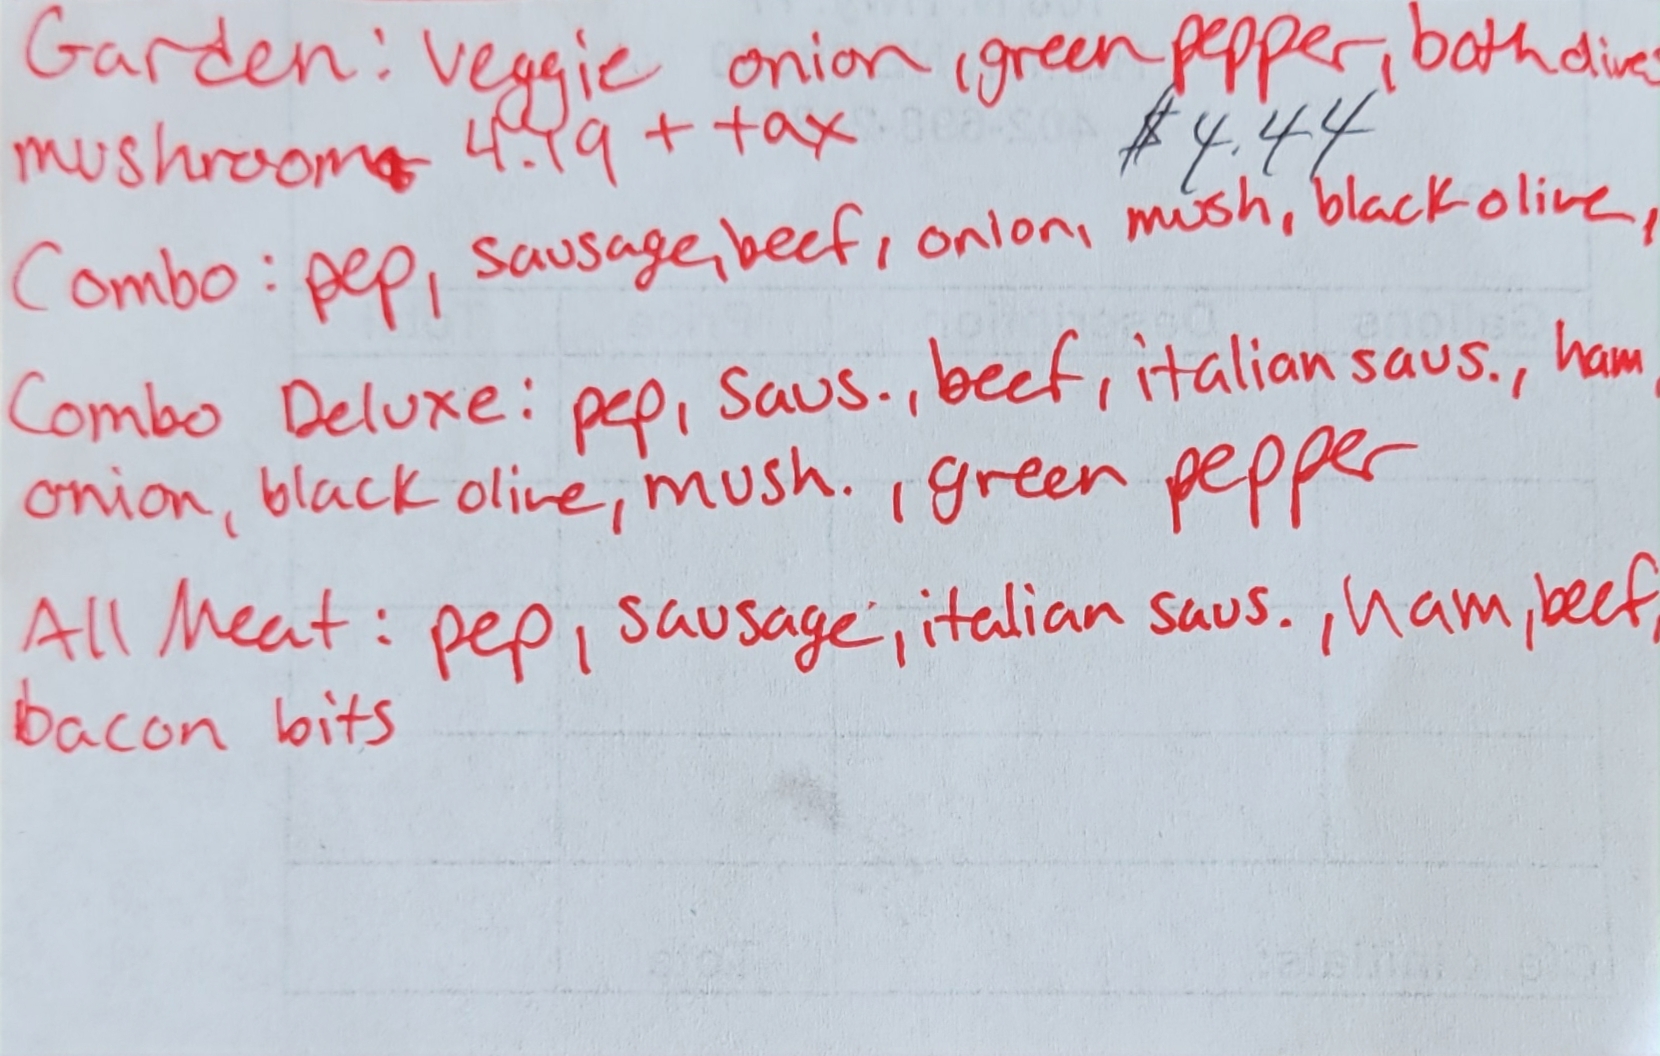 Garden: Veggie onion, green pepper, both olives
mushroom 4.19 + tax $4.44
Combo: pep, sausage, beef, onion, mush, black olive,
Combo Deluxe: pep, Saus., beef, italian saus., ham,
onion, black olive, mush., green pepper
All Meat: pep, sausage, italian saus., ham, beef,
bacon bits